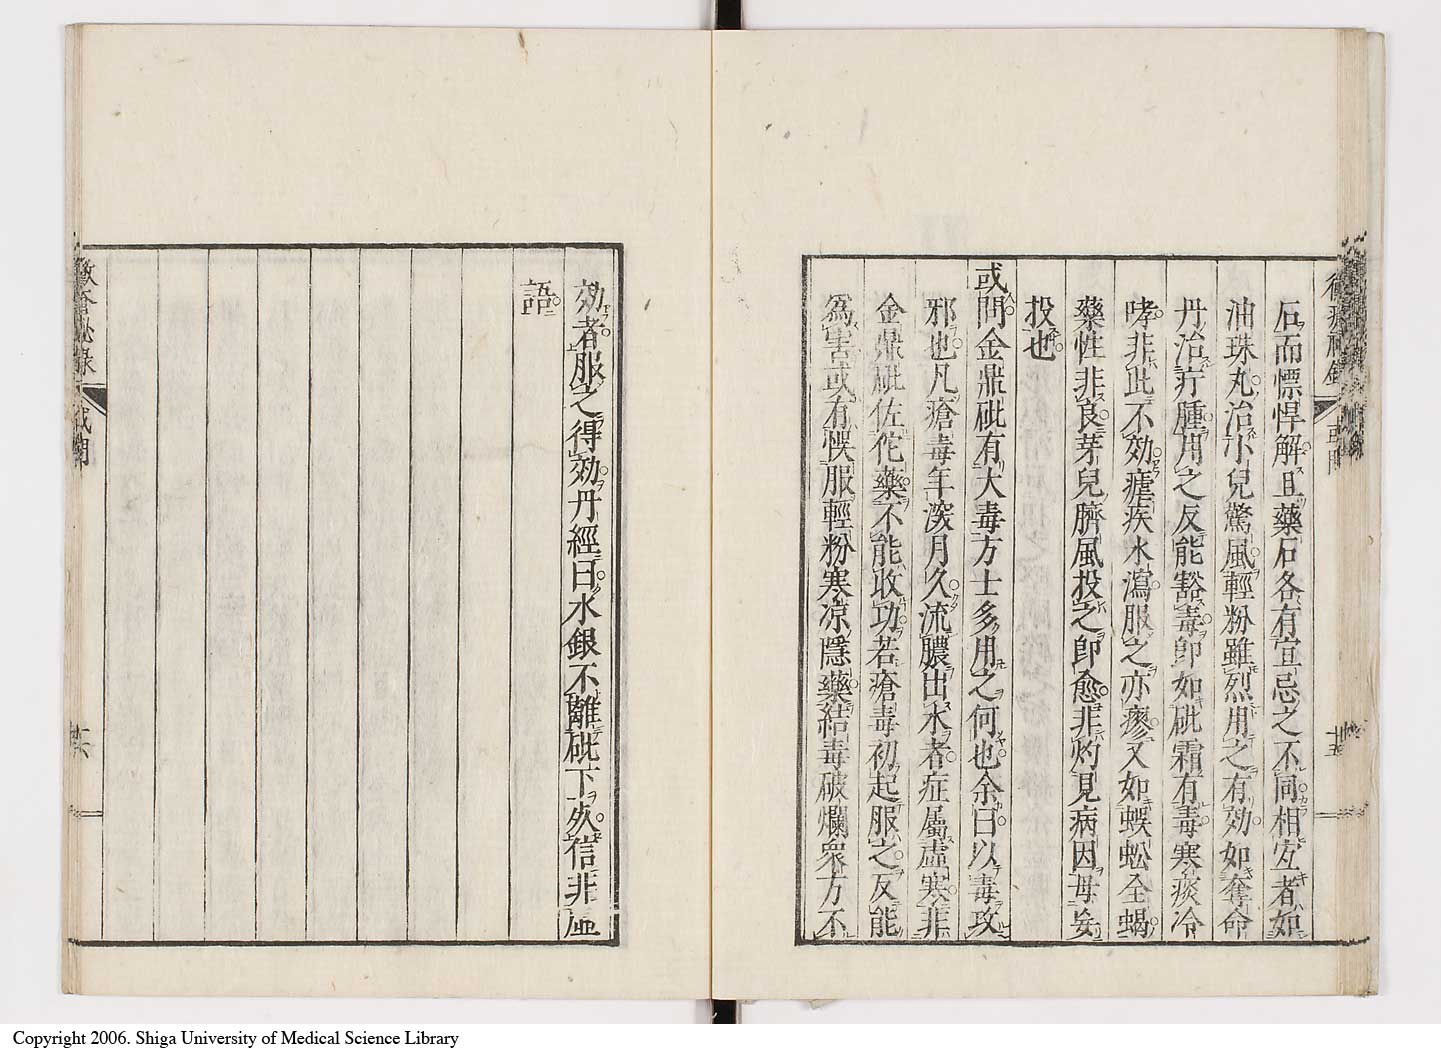 石而慓悍解且藥石各有宜忌之不同相宜者如
油珠丸治小兒驚風輕粉雖烈用之有効如奪命
丹治疔腫用之反能豁毒即如砒霜有毒寒痰冷
哮非此不効瘧疾水瀉服之亦瘳又如蜈蚣全蝎
藥性非良芽兒臍風投之即愈非灼見病因毋妄
投也
或問金鼎砒有大毒方士多用之何也余曰以毒攻
邪也凡瘡毒年深月久流膿出水者症屬虛寒非
金鼎砒佐佗藥不能收功若瘡毒初起服之反能
為害或有悞服輕粉寒凉隱藥結毒破爛衆方不
効者服之得効丹經曰水銀不離砒下久信非虛
語
黴瘡秘錄
或問
十六
Copyright 2006. Shiga University of Medical Science Library